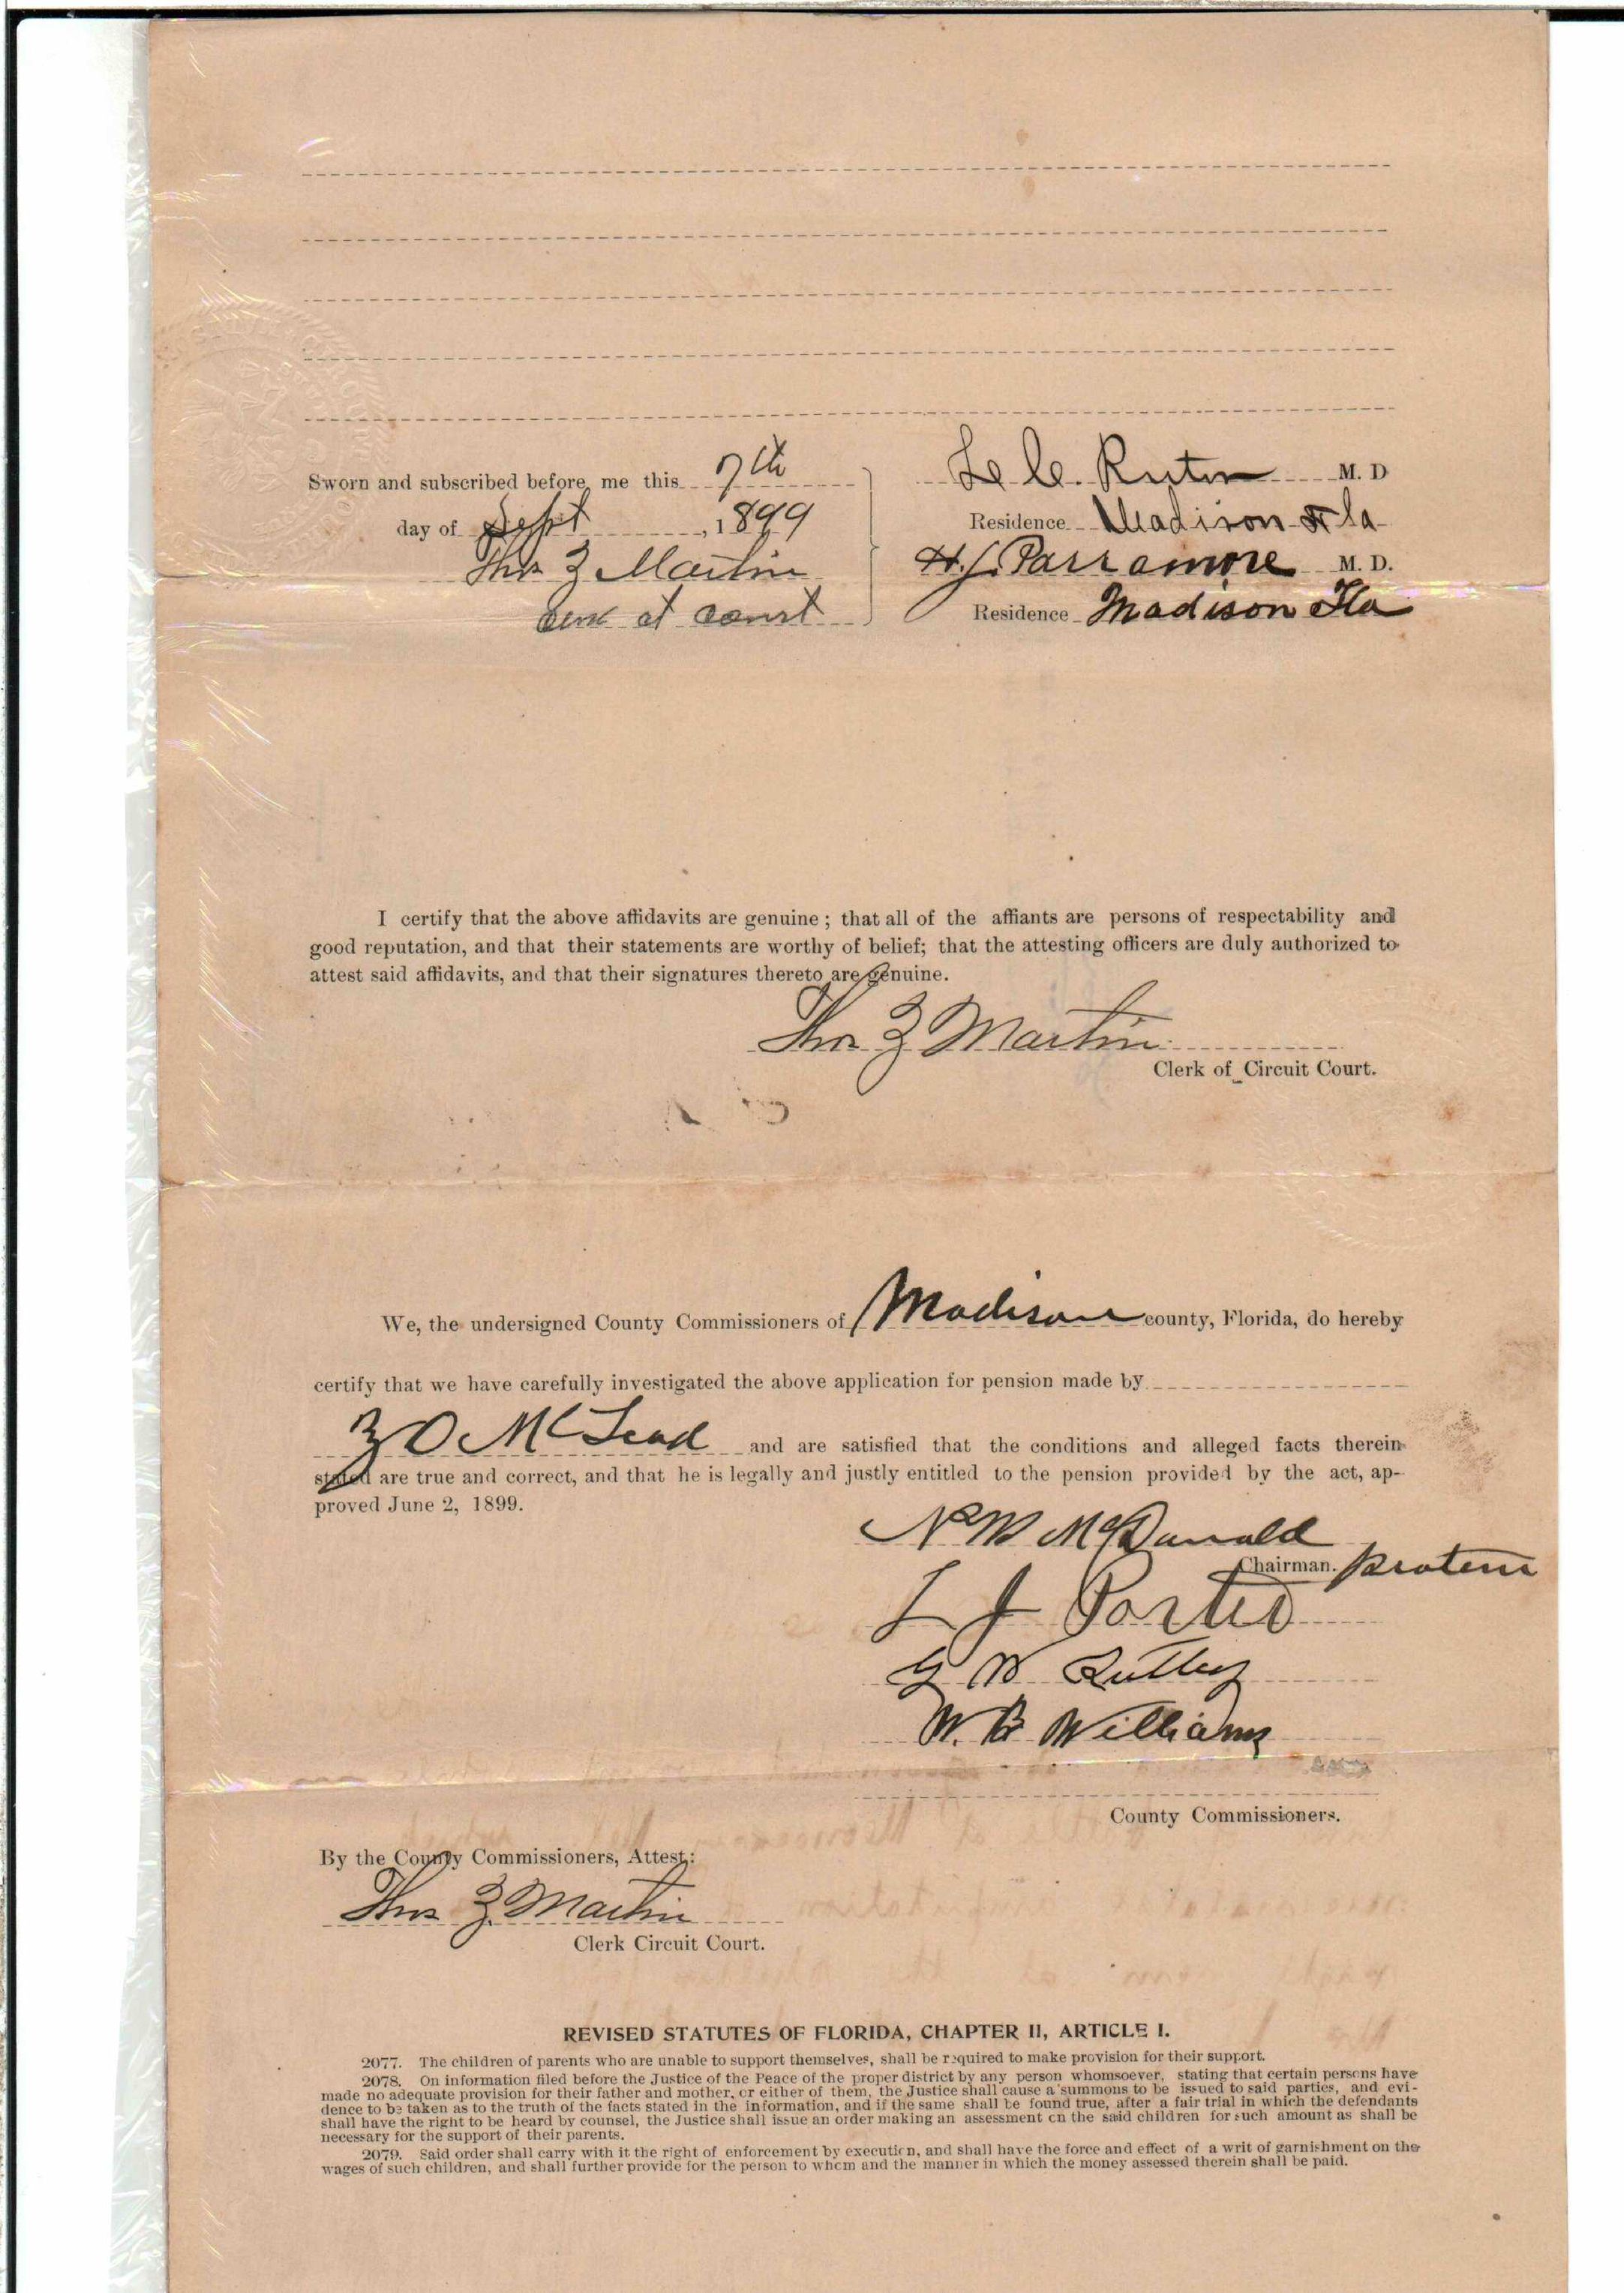 Sworn and subscribed before me this 7th
day of Sept, 1899
Thos Z Martin
Clerk ct court
M. D
Residence Madison Fla
H. J. Parramore M. D.
Residence Madison Fla
I certify that the above affidavits are genuine; that all of the affiants are persons of respectability and
good reputation, and that their statements are worthy of belief; that the attesting officers are duly authorized to
attest said affidavits, and that their signatures thereto are genuine.
Thos Z Martin
Clerk of Circuit Court.
We, the undersigned County Commissioners of Madison county, Florida, do hereby
certify that we have carefully investigated the above application for pension made by
Z O McLeod and are satisfied that the conditions and alleged facts therein
stated are true and correct, and that he is legally and justly entitled to the pension provided by the act, ap-
proved June 2, 1899.
N W McDonald
Chairman. protem
L J Porter
G W
W. B Williams
County Commissioners.
By the County Commissioners, Attest:
Thos Z. Martin
Clerk Circuit Court.
REVISED STATUTES OF FLORIDA, CHAPTER II, ARTICLE I.
2077. The children of parents who are unable to support themselves, shall be required to make provision for their support.
2078. On information filed before the Justice of the Peace of the proper district by any person whomsoever, stating that certain persons have
made no adequate provision for their father and mother, or either of them, the Justice shall cause a summons to be issued to said parties, and evi-
dence to be taken as to the truth of the facts stated in the information, and if the same shall be found true, after a fair trial in which the defendants
shall have the right to be heard by counsel, the Justice shall issue an order making an assessment on the said children for such amount as shall be
necessary for the support of their parents.
2079. Said order shall carry with it the right of enforcement by execution, and shall have the force and effect of a writ of garnishment on the
wages of such children, and shall further provide for the person to whom and the manner in which the money assessed therein shall be paid.